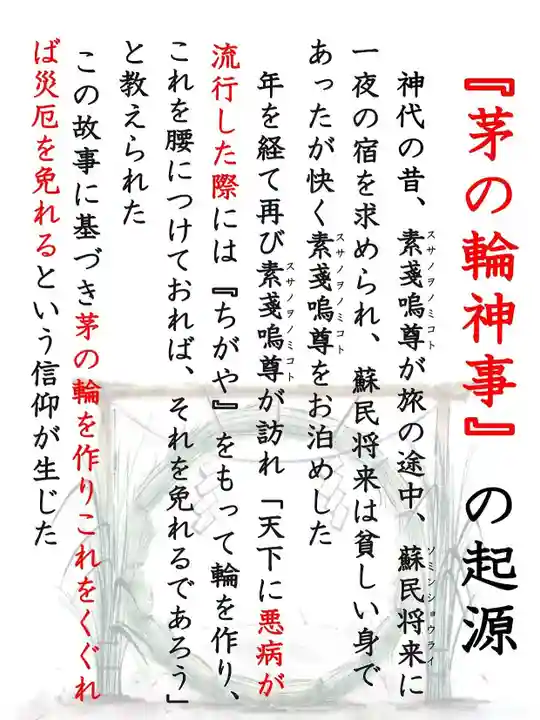 『茅の輪神事』の起源
神代の昔、素戔嗚尊が旅の途中、蘇民将来に
スサノヲノミコト
ソミンショウライ
一夜の宿を求められ、蘇民将来は貧しい身で
あったが快く素戔嗚尊をお泊めした
スサノヲノミコト
年を経て再び素戔嗚尊が訪れ「天下に悪病が
スサノヲノミコト
流行した際には『ちがや』をもって輪を作り、
これを腰につけておれば、それを免れるであろう」
と教えられた
この故事に基づき茅の輪を作りこれをくぐれ
ば災厄を免れるという信仰が生じた